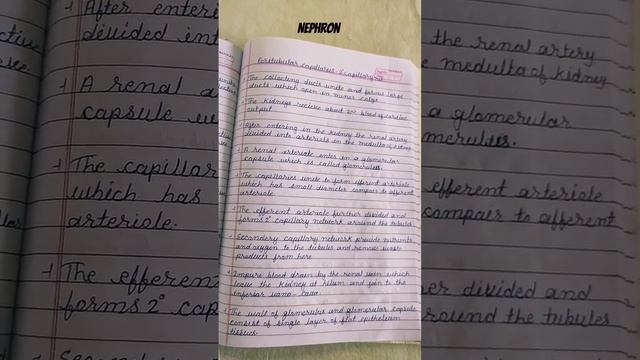 NEPHRON
Peritubular capillaries :- 2° capillary
The collecting ducts unite and forms large
ducts which open in minor calyx
The kidneys recieve about 20% blood of cardiac
output
After entering in the kidney the renal artery
devided into arteriols in the medulta of kidney
A renal arteriole enter in a glomerular
capsule which is called glomerulus.
The capillaries unite to form efferent arteriole
which has small diameter compair to afferent
arteriole.
The efferent arteriole further divided and
forms 2° capillary network around the tubules
Secondery capillary network provide nutrients
and oxygen to the tubules and remove waste
products from here
Impure blood drain by the renal vein which
leave the kidney at hilum and join to the
inferior vana-cava.
The wall of glomerulus and glomerular capsule
consist of single layer of flat epithelium
tissues.
After enteri
devided int
A renal a
capsule w
The capillar
which has
arteriole.
The efferen
forms 2° cap
the renal artery
medulta of kidney
a glomerular
merulus.
efferent arteriole
compair to afferent
her divided and
round the tubules